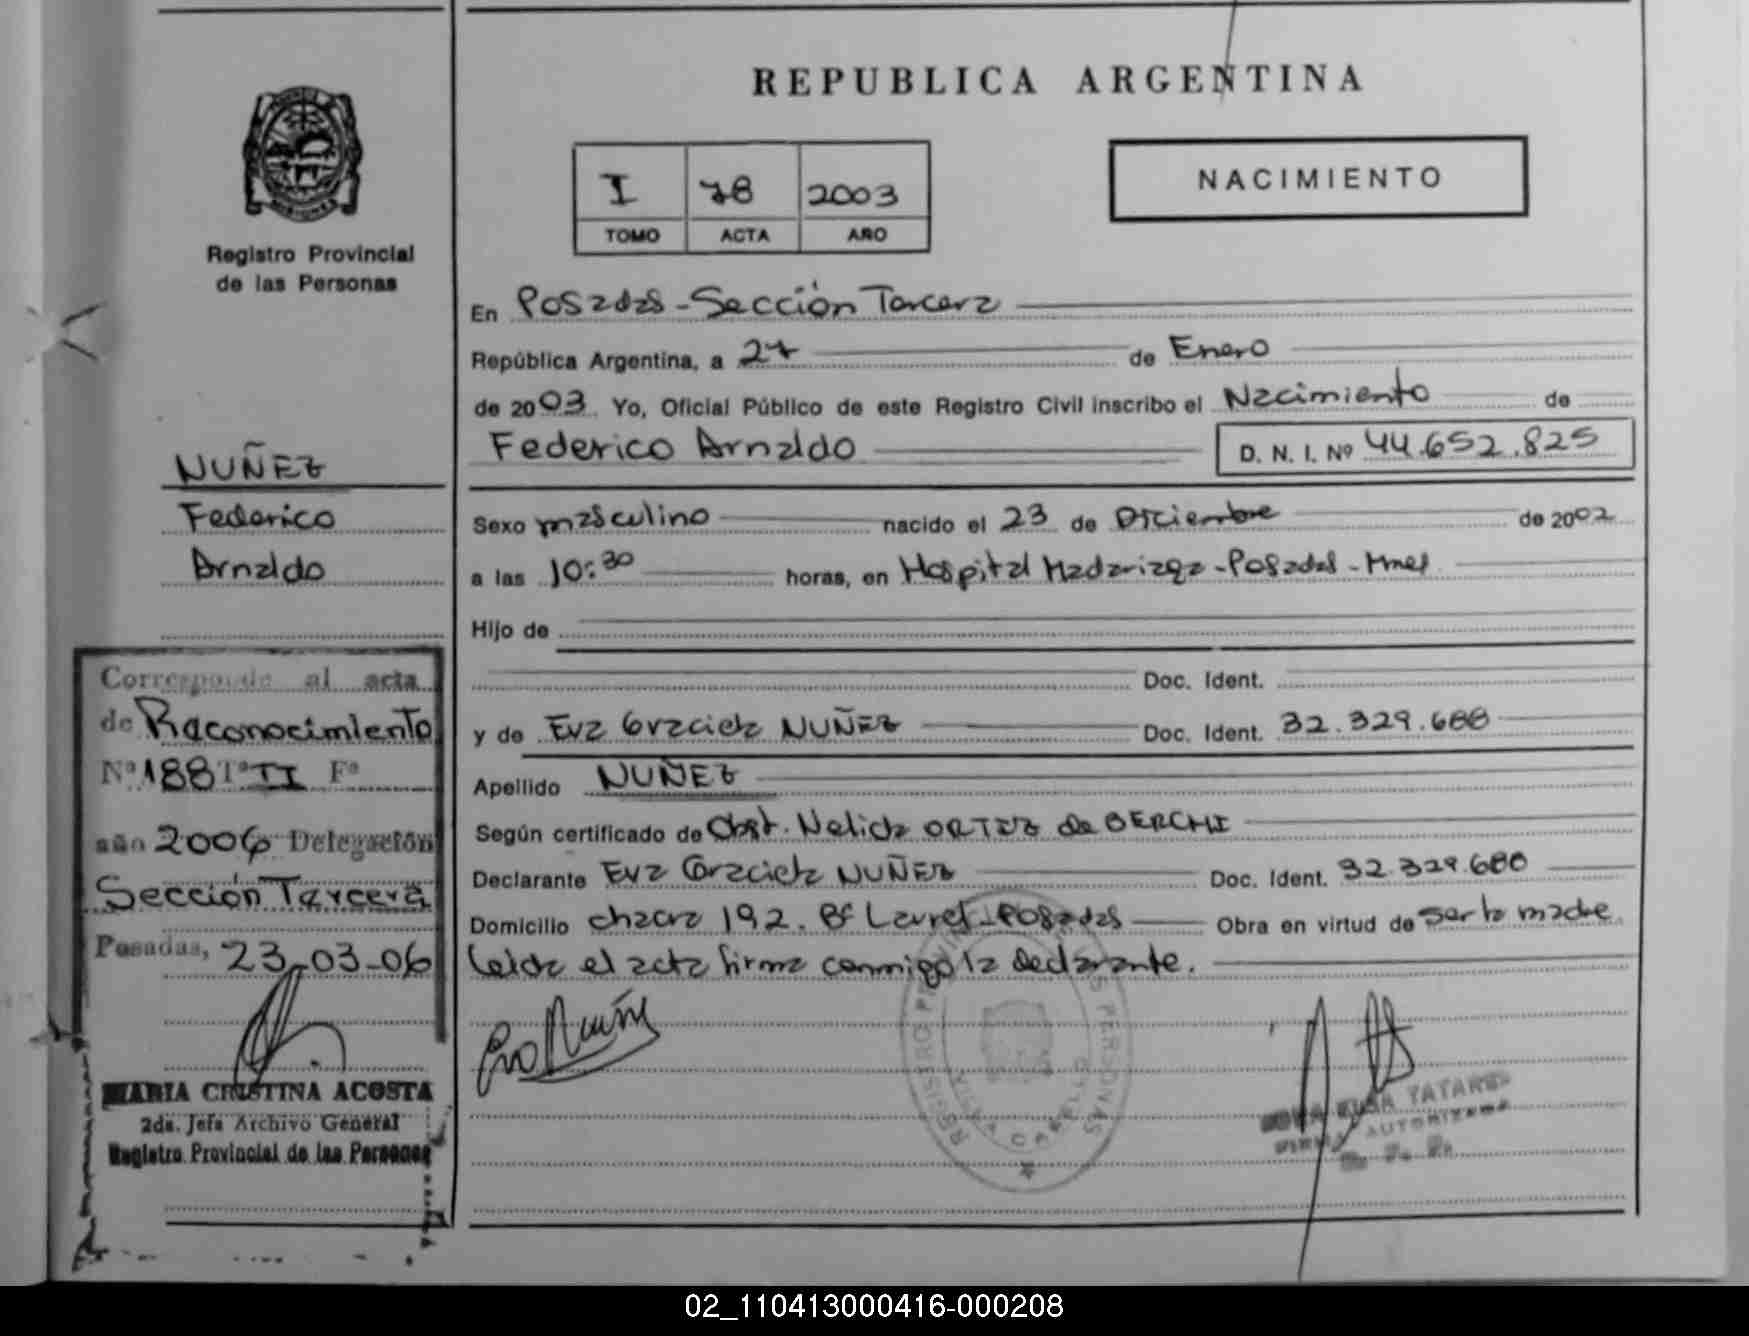 REPUBLICA ARGENTINA
I 78 2003
TOMO ACTA AÑO
NACIMIENTO
MISIONES
Registro Provincial
de las Personas
En Posadas - Sección Tercera
República Argentina, a 27 de Enero
de 2003 Yo, Oficial Público de este Registro Civil inscribo el Nacimiento de
Federico Arnaldo D. N. I. Nº 44.652.825
Sexo masculino nacido el 23 de Diciembre de 2002
a las 10:30 horas, en Hospital Madariaga - Posadas - Mnes
Hijo de
Doc. Ident.
y de Eva Graciela NUÑEZ Doc. Ident. 32.329.688
Apellido NUÑEZ
Según certificado de Obst. Nelida ORTIZ de BERCHI
Declarante Eva Graciela NUÑEZ Doc. Ident. 32.329.688
Domicilio chacra 192. Bº Laurel - Posadas Obra en virtud de ser la madre
Leida el acta firma conmigo la declarante.
Eva Nuñez
REGISTRO PROVINCIAL DE LAS PERSONAS
TATARE
FIRMA AUTORIZADA
R. P. P.
NUÑEZ
Federico
Arnaldo
Corresponde al acta
de Reconocimiento
Nº 188 Tº II Fº
año 2006 Delegación
Sección Tercera
Posadas, 23-03-06
MARIA CRISTINA ACOSTA
2da. Jefa Archivo General
Registro Provincial de las Personas
02_110413000416-000208